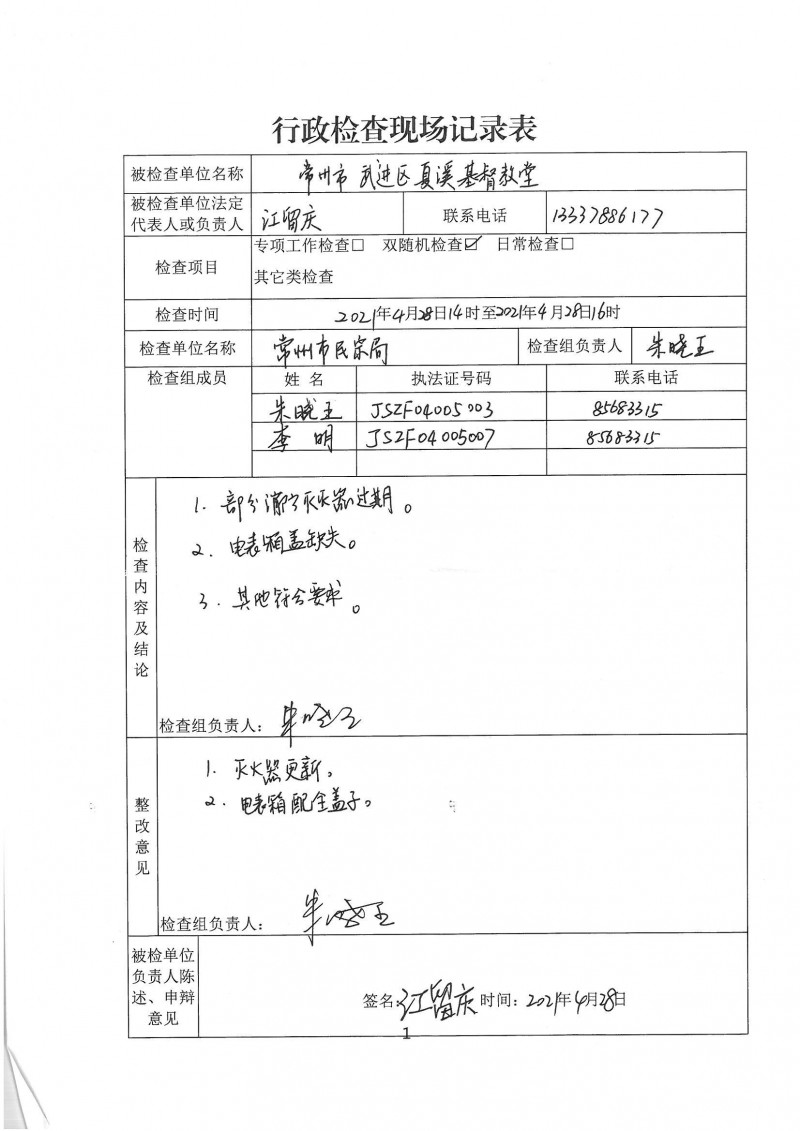 行政检查现场记录表
被检查单位名称 常州市武进区夏溪基督教堂
被检查单位法定
代表人或负责人 江留庆 联系电话 13337886177
检查项目 专项工作检查□ 双随机检查☑ 日常检查□
其它类检查
检查时间 2021年4月28日14时至2021年4月28日16时
检查单位名称 常州市民宗局 检查组负责人 朱晓玉
检查组成员 姓名 执法证号码 联系电话
朱晓玉 JSZF04005003 85683315
李明 JSZF04005007 85683315
检查内容及结论
1. 部分消防灭火器过期。
2. 电表箱盖缺失。
3. 其他符合要求。
检查组负责人: 朱晓玉
整改意见
1. 灭火器更新。
2. 电表箱配全盖子。
检查组负责人: 朱晓玉
被检单位
负责人陈
述、申辩
意见
签名: 江留庆 时间: 2021年4月28日
1